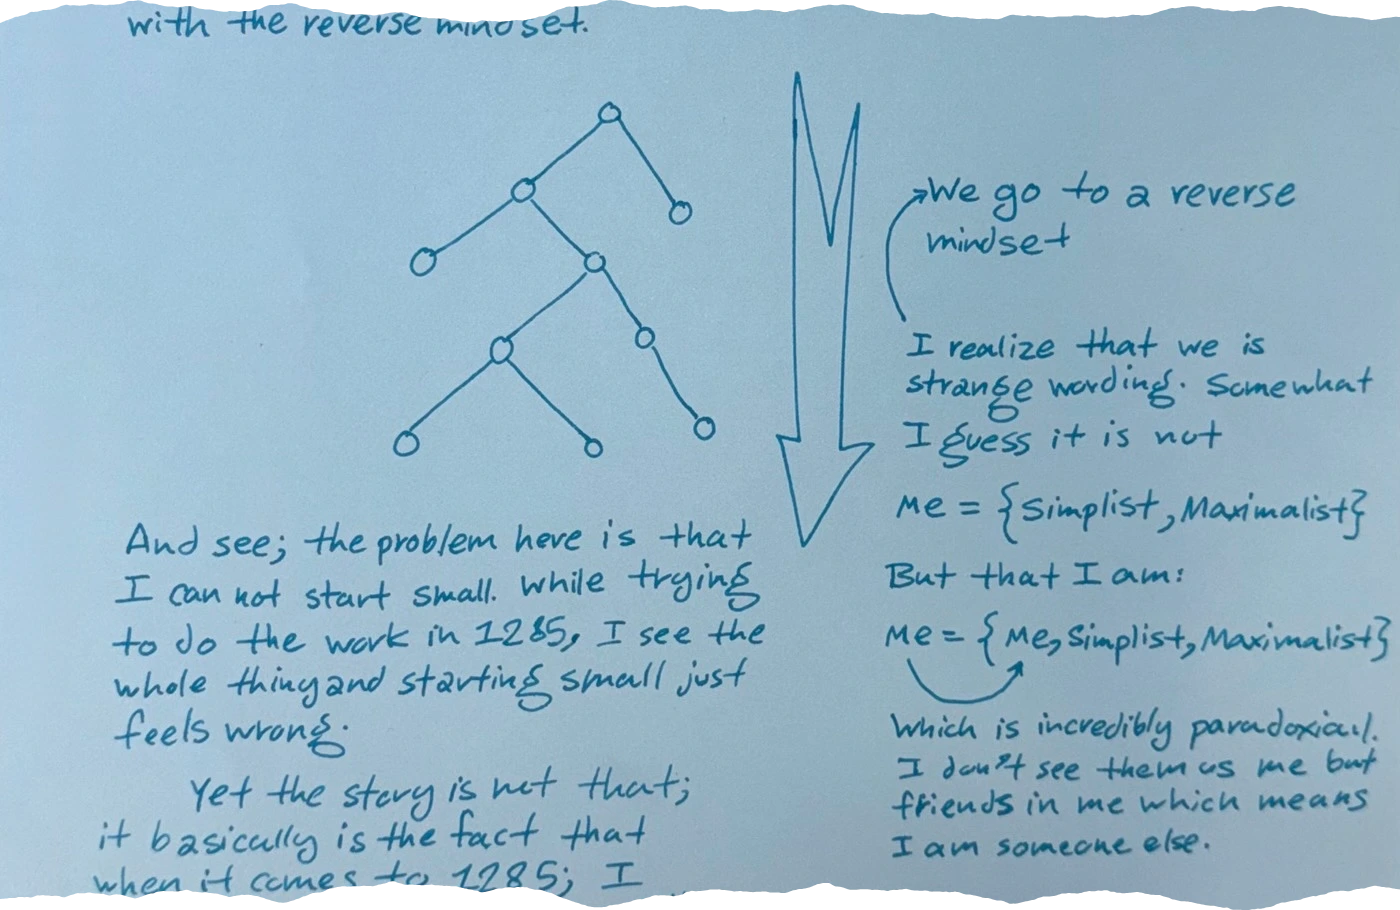 with the reverse mindset.
We go to a reverse
mindset
I realize that we is
strange wording. Somewhat
I guess it is not
Me = {Simplist, Maximalist}
But that I am:
Me = {Me, Simplist, Maximalist}
Which is incredibly paradoxiacal.
I don't see them as me but
friends in me which means
I am someone else.
And see; the problem here is that
I can not start small. While trying
to do the work in 1285, I see the
whole thing and starting small just
feels wrong.
Yet the story is not that;
it basically is the fact that
when it comes to 1285; I